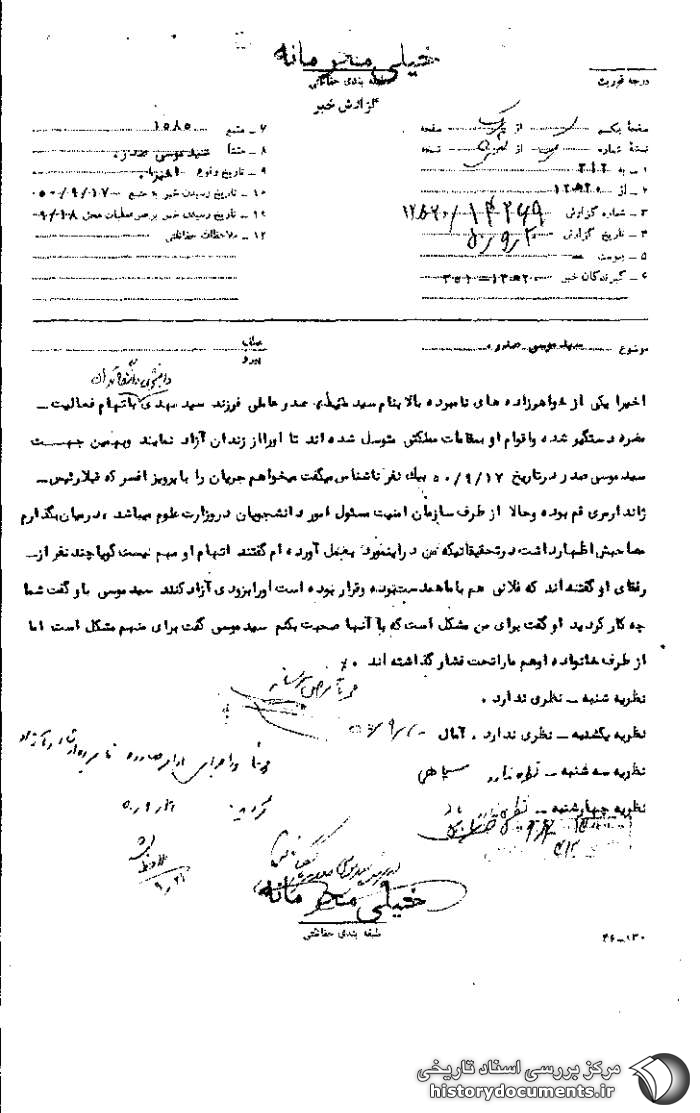 خیلی محرمانه
طبقه بندی حفاظتی
درجه فوریت
گزارش خبر
صفحه یکم از یک صفحه
نسخه شماره از نسخه
۱ ـ به ۳۱۲
۲ ـ از ۲۰ه۱۲
۳ ـ شماره گزارش ۱۴۲۶۹/۲۰ه۱۲
۴ ـ تاریخ گزارش
۵ ـ پیوست
۶ ـ گیرندگان خبر
۷ ـ منبع ۱۰۸۵
۸ ـ منشأ سید موسی صدر
۹ ـ تاریخ وقوع اخیرا
۱۰ ـ تاریخ رسیدن خبر به منبع ۵۰/۹/۱۷
۱۱ ـ تاریخ رسیدن خبر برهبر عملیات محل ۹/۱۸
۱۲ ـ ملاحظات حفاظتی
موضوع سید موسی صدر
عطف
پیرو
دانشجوی دانشگاه تهران
اخیرا یکی از خواهرزاده های نامبرده بالا بنام سید صدر عاملی فرزند سید مهدی باتهام فعالیت ـ
مضره دستگیر شده واقوام او بمقامات مملکتی متوسل شده اند تا اورا از زندان آزاد نمایند وبهمین جهت
سید موسی صدر درتاریخ ۵۰/۹/۱۷ بیک نفر ناشناس میگفت میخواهم جریان را با پرویز افسر که قبلا رئیس ـ
ژاندارمری قم بوده وحالا از طرف سازمان امنیت مسئول امور دانشجویان دروزارت علوم میباشد ، درمیان بگذارم
مصاحبش اظهار داشت درتحقیقاتیکه من دراینمورد بعمل آورده ام گفتند اتهام او مهم نیست گویا چند نفر از ـ
رفقای او گفته اند که فلانی هم با ما همدست بوده وقرار بوده است اورا بزودی آزاد کنند سید موسی باو گفت شما
چه کار کردید او گفت برای من مشکل است که با آنها صحبت بکنم سید موسی گفت برای منهم مشکل است اما
از طرف خانواده اوهم مارا تحت فشار گذاشته اند
نظریه شنبه ـ نظری ندارد .
نظریه یکشنبه ـ نظری ندارد . آمال
نظریه سه شنبه ـ نظری ندارد سپاهی
نظریه چهارشنبه ـ نظری
خیلی محرمانه
طبقه بندی حفاظتی
۱۳۰ـ۲۶
مرکز بررسی اسناد تاریخی
historydocuments.ir